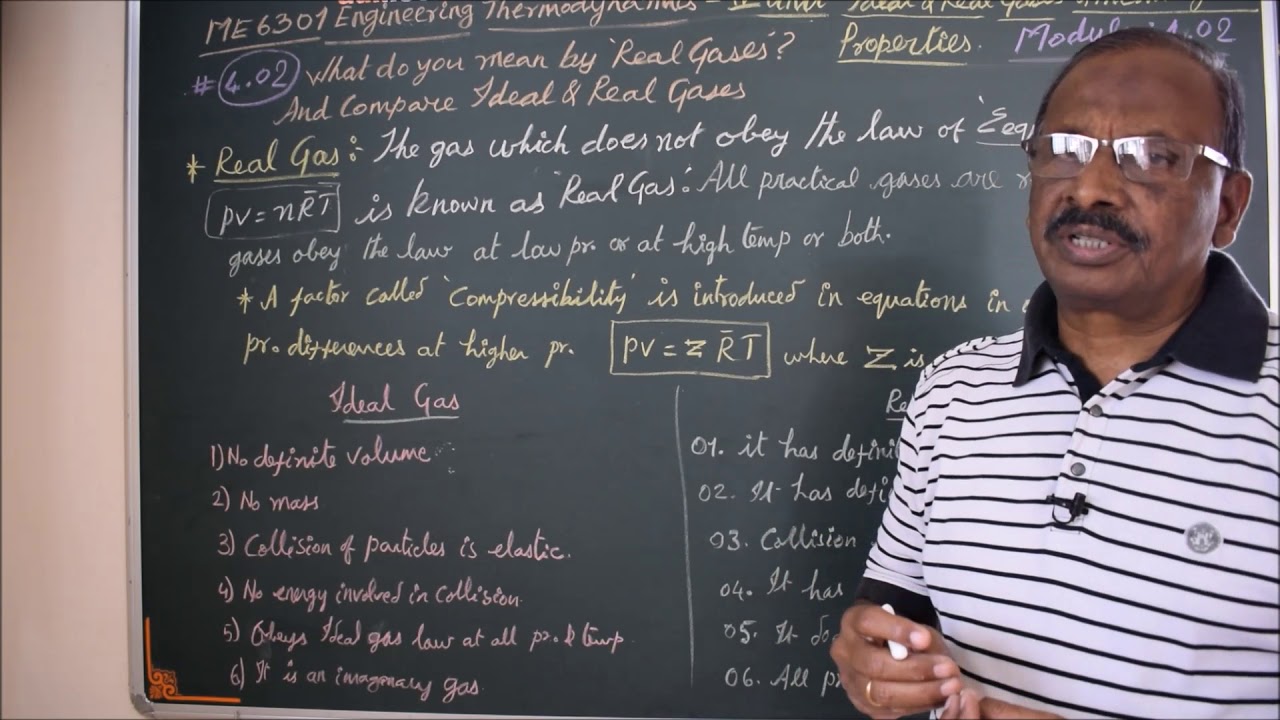 ME6301 Engineering Thermodynamics - IV Unit Ideal & Real Gases &
Properties. Module 4.02
# 4.02 What do you mean by 'Real Gases'?
And Compare Ideal & Real Gases
* Real Gas: The gas which does not obey the law of
pv = nR̄T is known as 'Real Gas'. All practical gases are
gases obey the law at low pr. or at high temp or both.
* A factor called 'Compressibility' is introduced in equations in
pr. differences at higher pr. pv = Z R̄T where Z is
Ideal Gas
1) No definite volume
2) No mass
3) Collision of particles is elastic.
4) No energy involved in collision.
5) Obeys Ideal gas law at all pr. & temp.
6) It is an imagonary gas.
01. it has
02. It has
03. Collision
04. It has
05. It
06. All